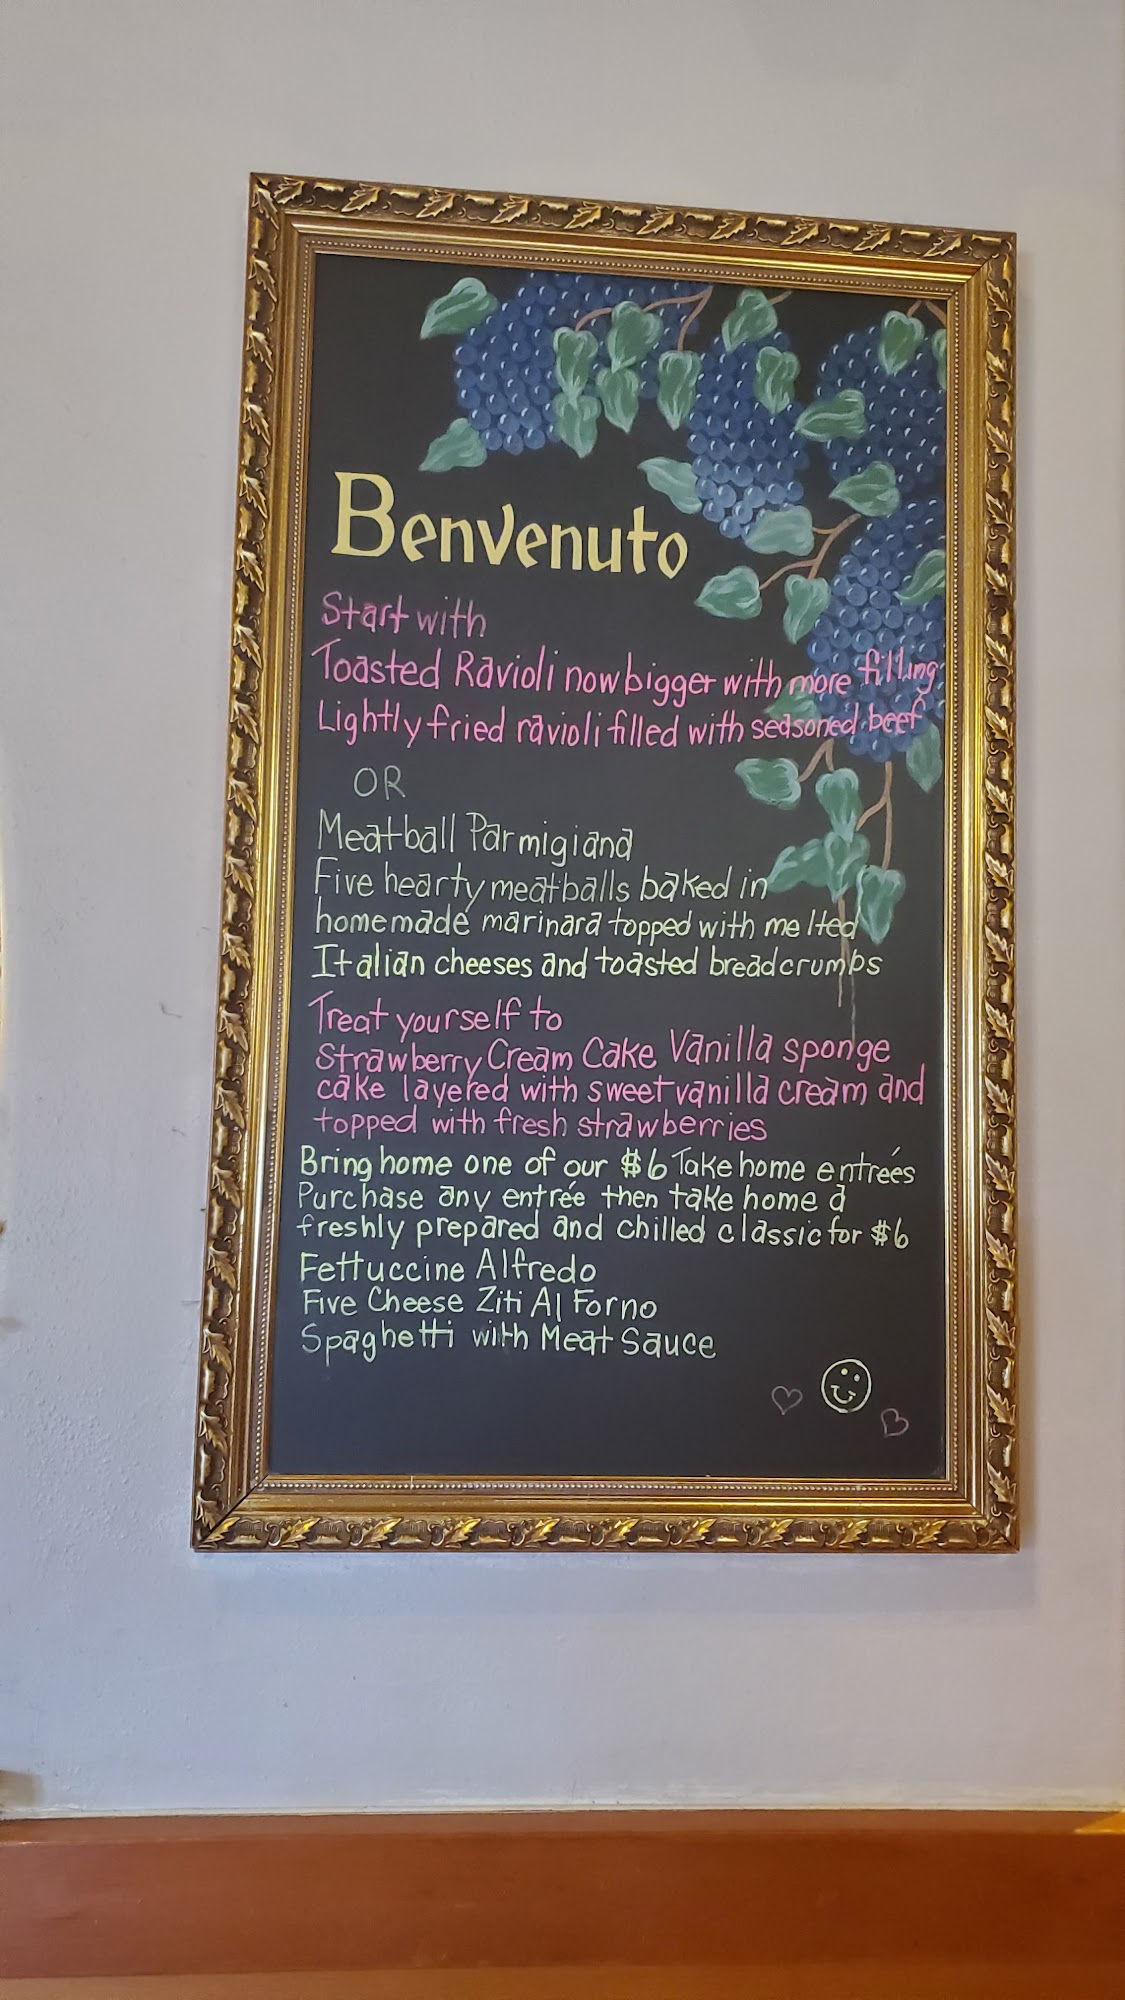 Benvenuto
Start with
Toasted Ravioli now bigger with more filling
Lightly fried ravioli filled with seasoned beef
OR
Meatball Parmigiana
Five hearty meatballs baked in
homemade marinara topped with melted
Italian cheeses and toasted breadcrumbs
Treat yourself to
Strawberry Cream Cake Vanilla sponge
cake layered with sweet vanilla cream and
topped with fresh strawberries
Bring home one of our $6 Take home entrées
Purchase any entrée then take home a
freshly prepared and chilled classic for $6
Fettuccine Alfredo
Five Cheese Ziti Al Forno
Spaghetti with Meat Sauce